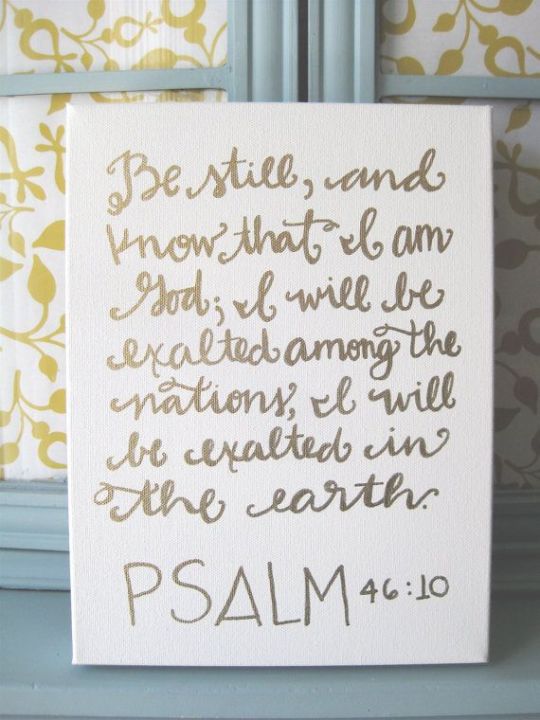 Be still, and
know that I am
God; I will be
exalted among the
nations, I will
be exalted in
the earth.
PSALM 46:10